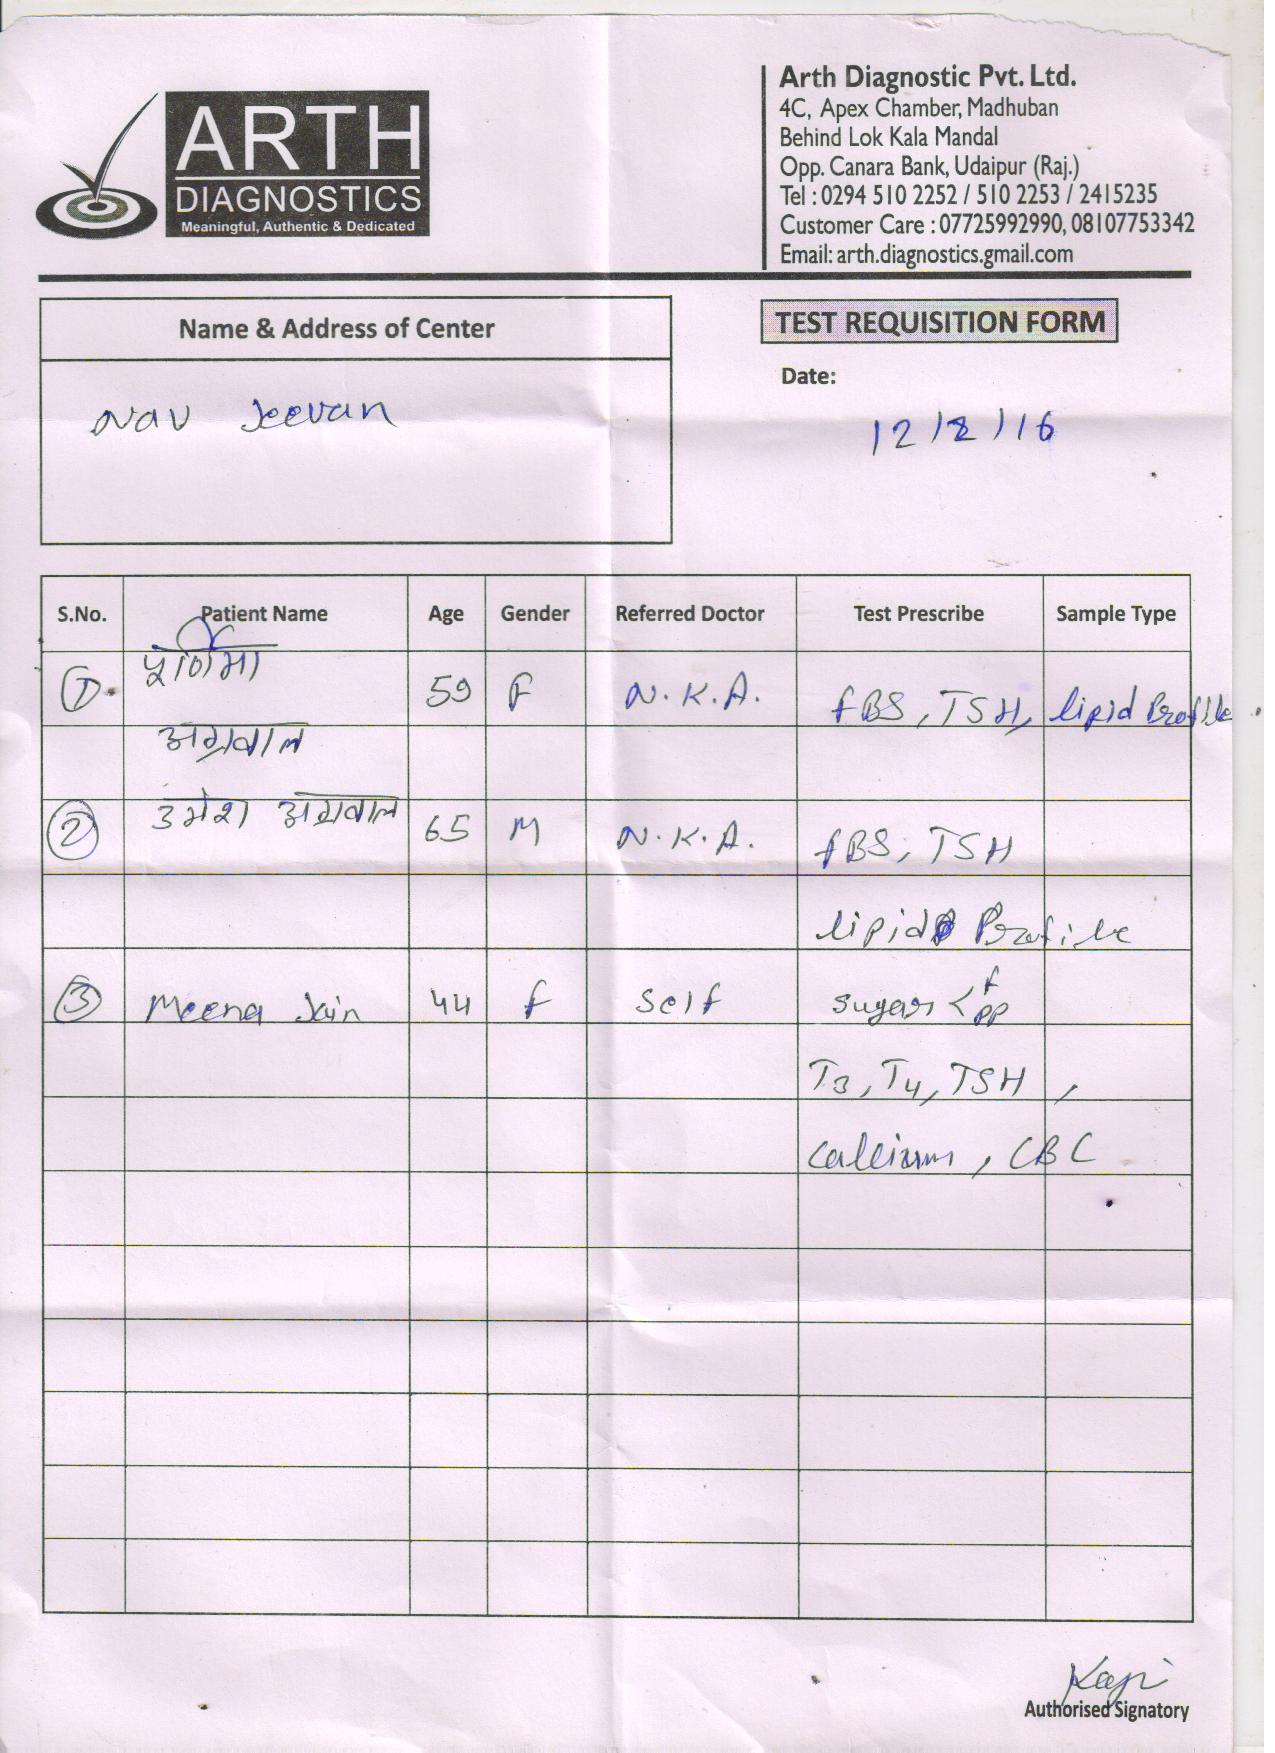 ARTH
DIAGNOSTICS
Meaningful, Authentic & Dedicated
Arth Diagnostic Pvt. Ltd.
4C, Apex Chamber, Madhuban
Behind Lok Kala Mandal
Opp. Canara Bank, Udaipur (Raj.)
Tel : 0294 510 2252 / 510 2253 / 2415235
Customer Care : 07725992990, 08107753342
Email: arth.diagnostics.gmail.com
Name & Address of Center
Nav Jeevan
TEST REQUISITION FORM
Date:
12/8/16
S.No. Patient Name Age Gender Referred Doctor Test Prescribe Sample Type
1 पूर्णिमा 59 F N.K.A. fBS, TSH, lipid Profile
अग्रवाल
2 उमेश अग्रवाल 65 M N.K.A. fBS, TSH
lipid Profile
3 Meena Jain 44 f Self sugar < f
PP
T3, T4, TSH ,
Callium, CBC
Authorised Signatory